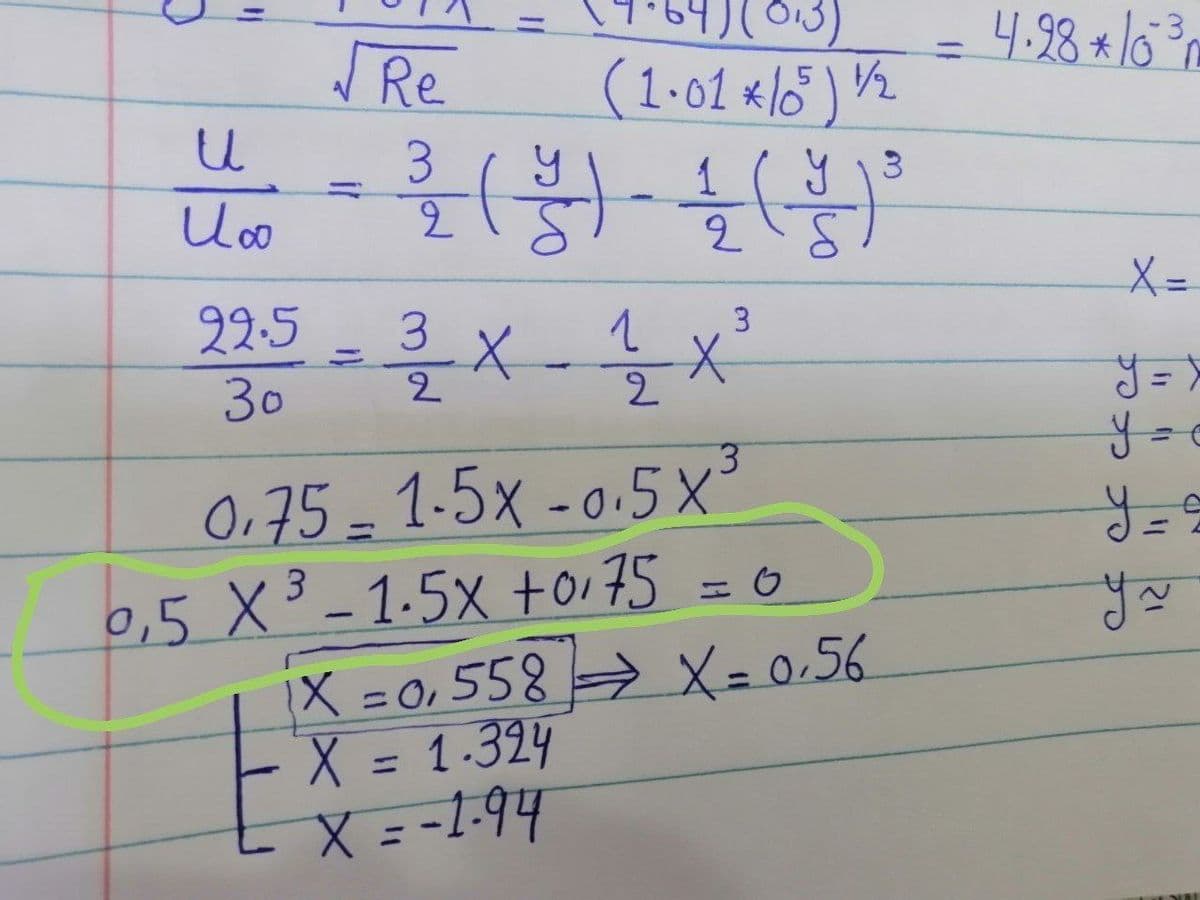 √Re = (4.64)(0.3) / (1.01 * 10^5)^1/2 = 4.98 * 10^-3
u/U∞ = 3/2 (y/δ) - 1/2 (y/δ)^3
X =
22.5/30 = 3/2 X - 1/2 X^3
y =
y =
0.75 = 1.5X - 0.5X^3
y =
0,5 X^3 - 1.5X + 0,75 = 0
y ≈
X = 0,558 ⇒ X = 0.56
X = 1.324
X = -1.94